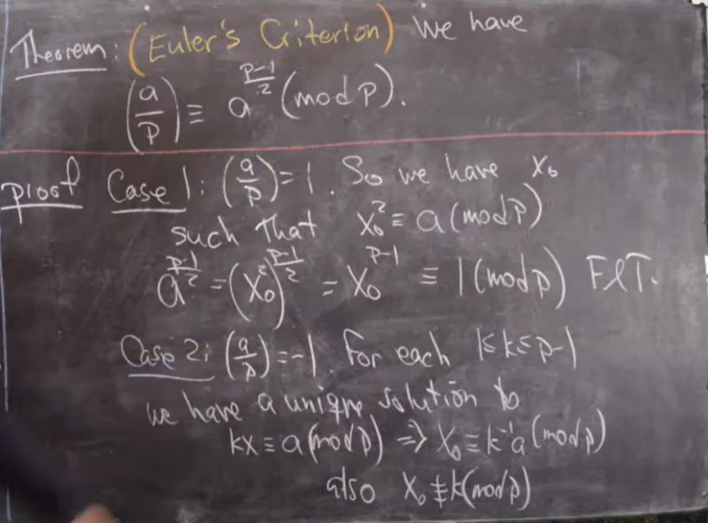 Theorem: (Euler's Criterion) We have
(a/p) ≡ a^((p-1)/2) (mod p).
proof Case 1: (a/p) = 1. So we have x₀
such that x₀² ≡ a (mod p)
a^((p-1)/2) = (x₀²)^((p-1)/2) = x₀^(p-1) ≡ 1 (mod p) FℓT.
Case 2: (a/p) = -1. For each 1 ≤ k ≤ p-1
we have a unique solution to
kx ≡ a (mod p) ⇒ x₀ ≡ k⁻¹a (mod p)
also x₀ ≢ k (mod p)